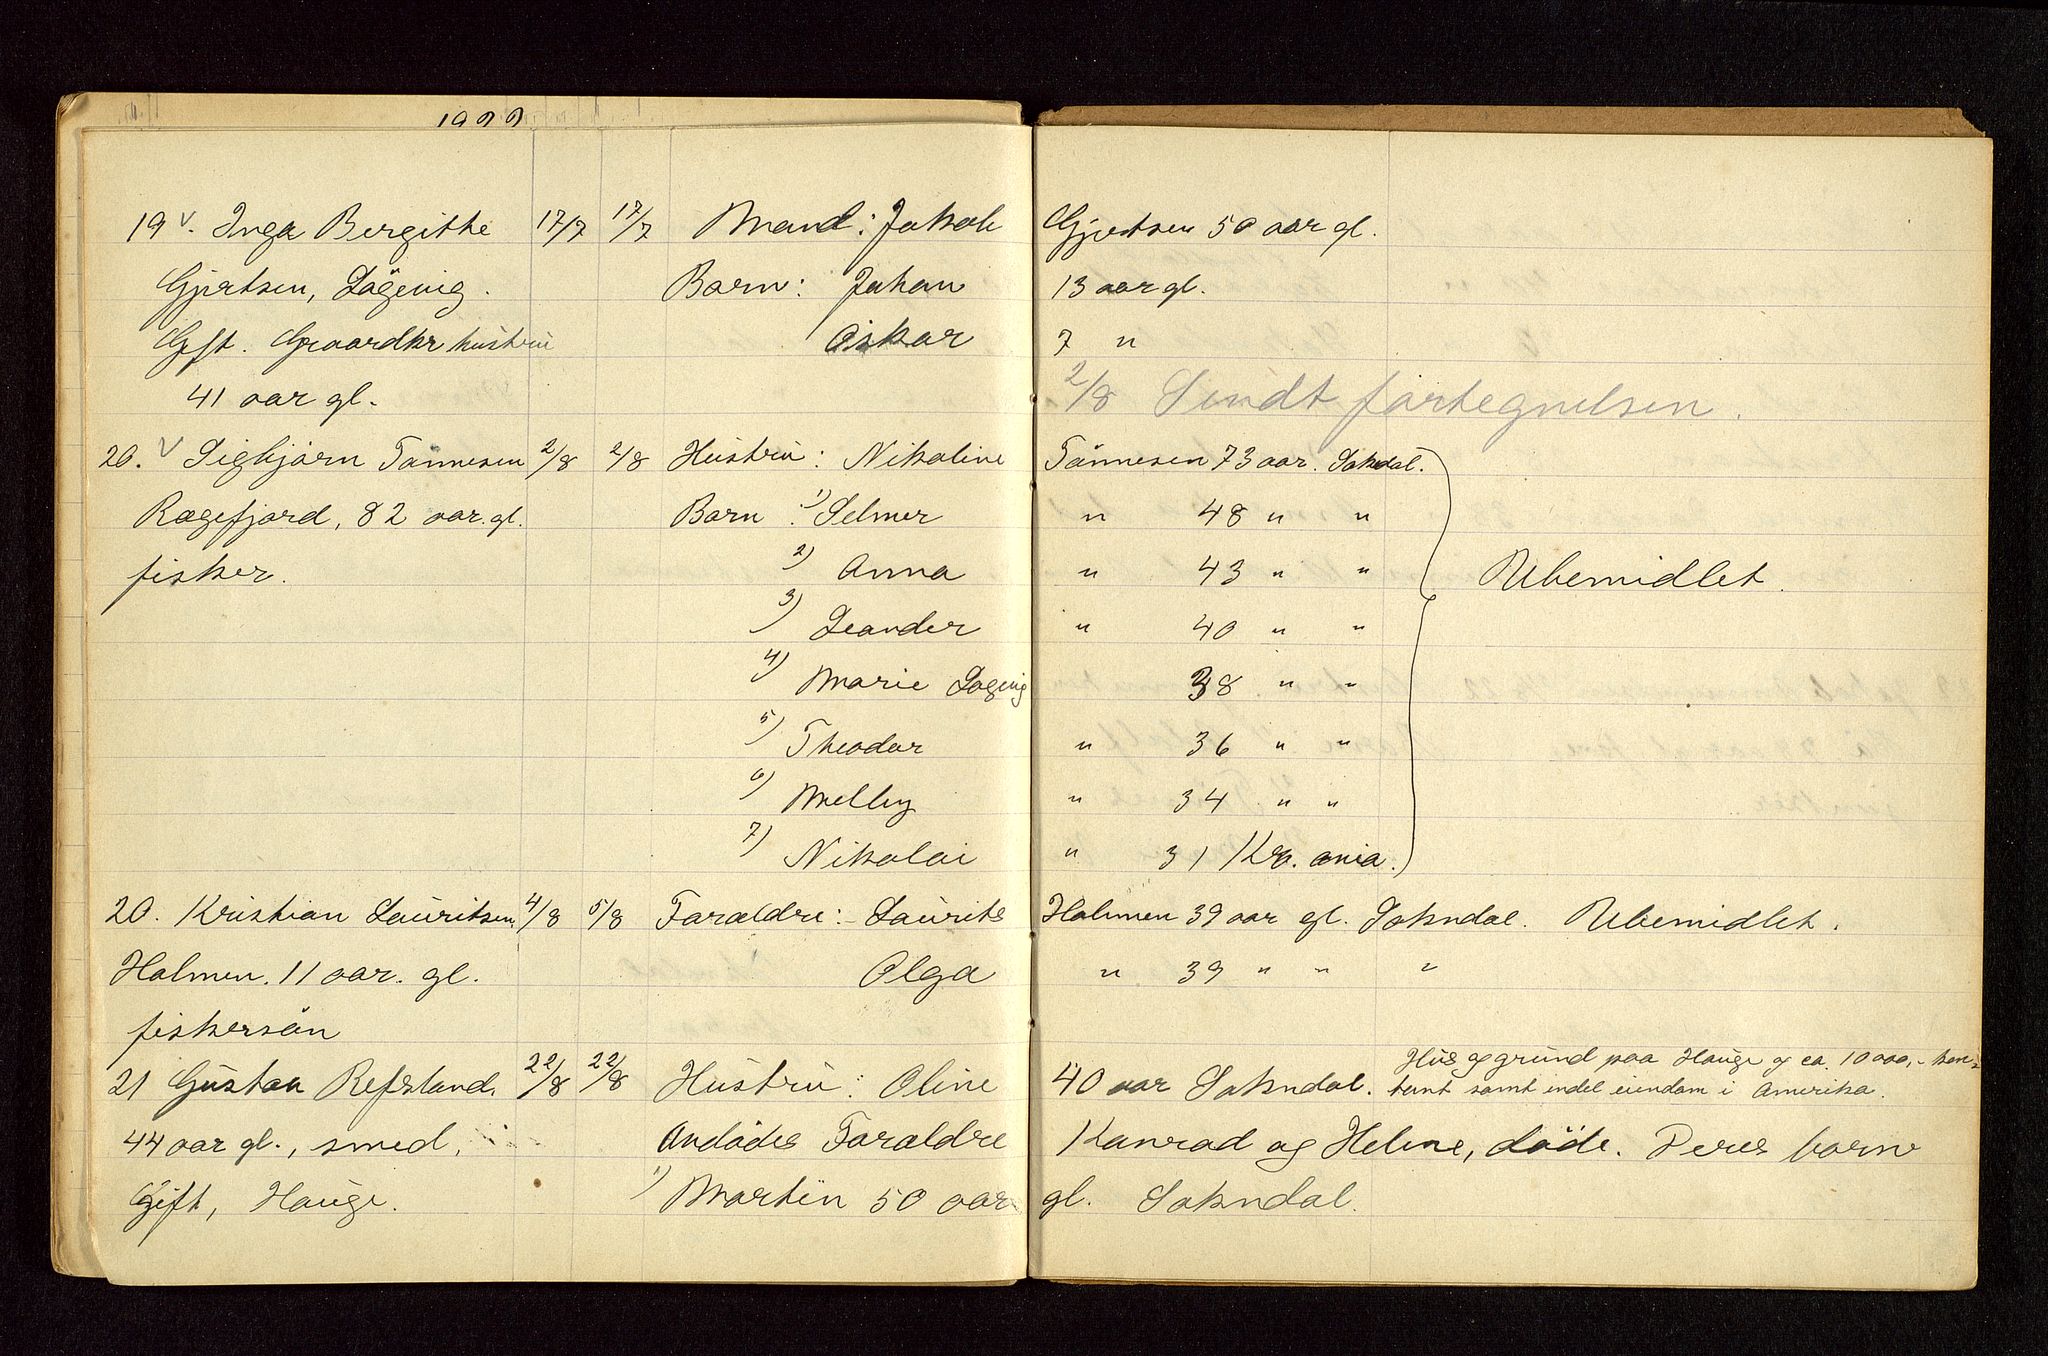 1922
19 v. Inga Bergithe 17/7 17/7 Mand: Jakob Gjertsen 50 aar gl.
Gjertsen, Lögevig. Barn: Johan 13 aar gl.
Gft. Gaardbr hustru Oskar 7 "
41 aar gl. 2/8 Sendt fortegnelsen.
20. v Sigbjørn Tönnesen 2/8 2/8 Hustru: Nikoline Tönnesen 73 aar. Sokndal.
Rægefjord, 82 aar. gl. Barn: 1) Selmer " 48 " "
fisker. 2) Anna " 43 " " Ubemidlet.
3) Leander " 40 " "
4) Marie Løgevig 38 " "
5) Theodor " 36 " "
6) Melly " 34 " "
7) Nikolai " 31 Kr. ania.
20. Kristian Lauritsen 4/8 5/8 Forældre: Laurits Holmen 39 aar gl. Sokndal. Ubemidlet.
Holmen. 11 aar. gl. Olga " 39 " " "
fiskersön
21 Gustav Refsland, 22/8 22/8 Hustru: Oline 40 aar Sokndal. Hus og grund paa Hauge og ca. 10000,- kon-
tant samt endel eiendom i Amerika.
44 aar gl., smed, Avdødes Forældre Konrad og Helene, døde. Deres barn
Gift, Hauge. 1) Martin 50 aar gl. Sokndal.